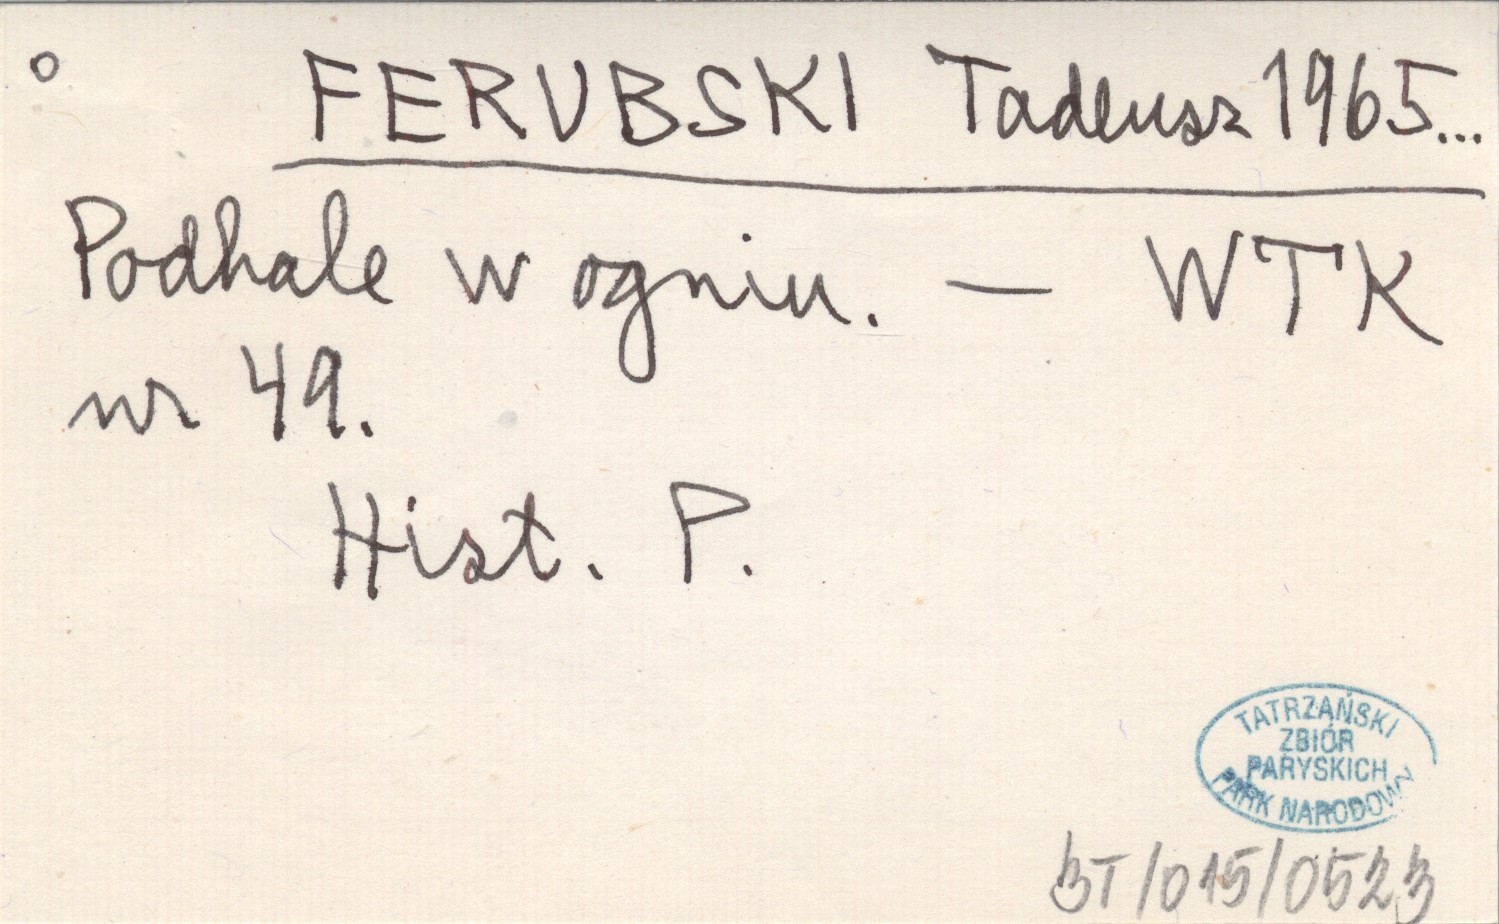 ° FERUBSKI Tadeusz 1965...
Podhale w ogniu. — WTK
nr 49.
Hist. P.
TATRZAŃSKI
ZBIÓR
PARYSKICH
PARK NARODOWY
BT/015/0523